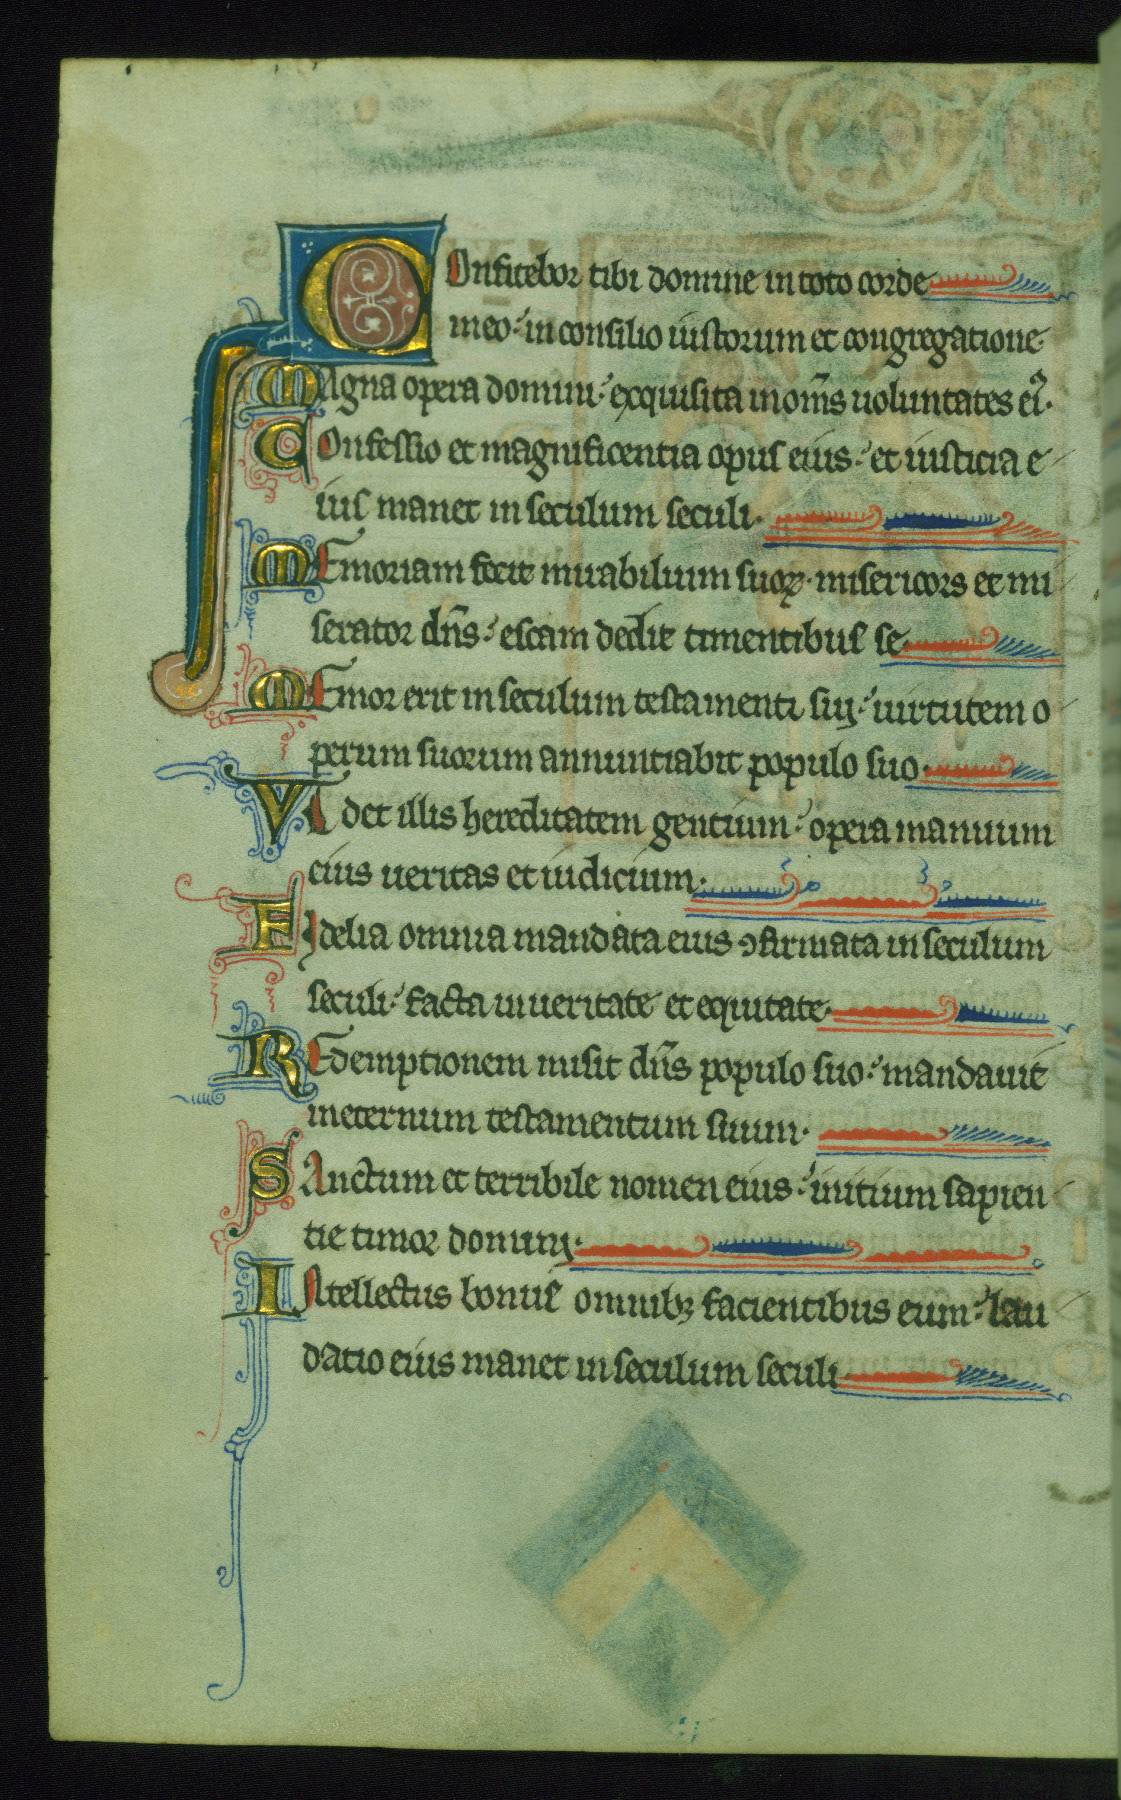 COnfitebor tibi domine in toto corde
meo: in consilio iustorum et congregatione.
MAgna opera domini: exquisita in om̄s uoluntates ei᷒.
COnfessio et magnificentia opus eius: et iusticia e
ius manet in seculum seculi.
MEmoriam fecit mirabilium suoꝝ. misericors et mi
serator dn̄s: escam dedit timentibus se.
MEmor erit in seculum testamenti sui: uirtutem o
perum suorum annuntiabit populo suo.
Vt det illis hereditatem gentium: opera manuum
eius ueritas et iudicium.
FIdelia omnia mandata eius ↄfirmata in seculum
seculi: facta in ueritate et equitate.
REdemptionem misit dn̄s populo suo: mandauit
in eternum testamentum suum.
SAnctum et terribile nomen eius: initium sapien
tie timor domini.
INtellectus bonus omnibꝫ facientibus eum: lau
datio eius manet in seculum seculi.